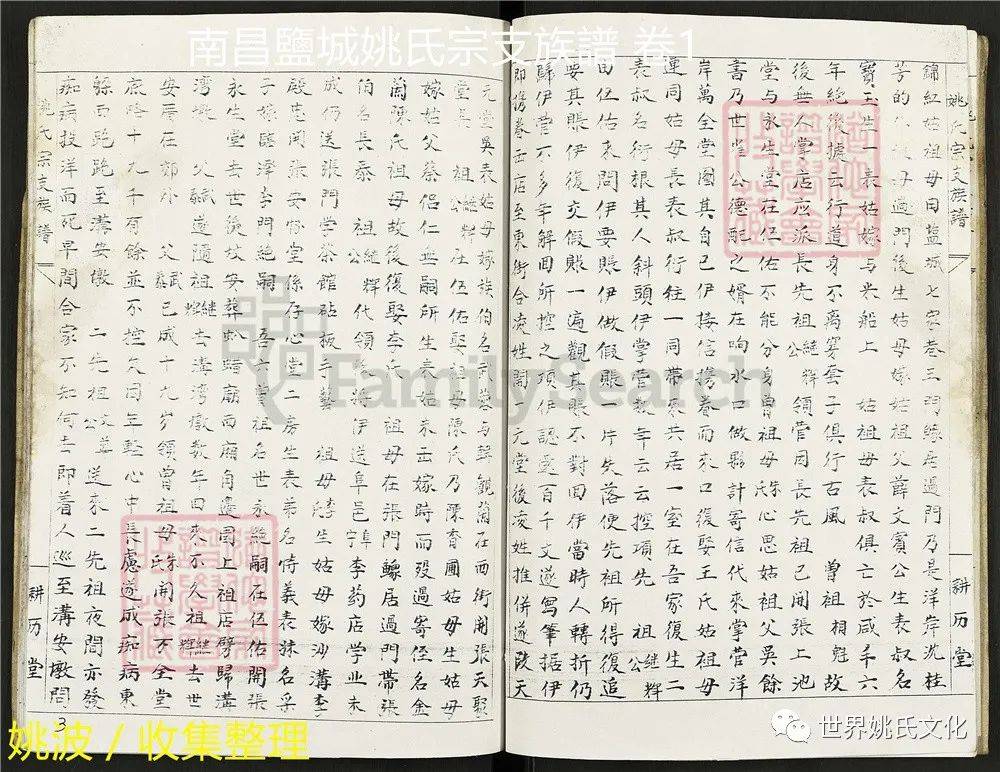 南昌鹽城姚氏宗支族譜 卷1
姚氏宗支族譜
耕历堂
錦紅姑祖母自盐城七家巷三門緣居過門乃是洋岸沈桂
芳的 母過門後生姑母嫁姑祖父薛文賓公生表叔名
寶玉生一表姑嫁与米船上 姑祖母表叔俱亡於咸丰六
年絶後據云行道身不离穿雲子俱行古風 曾祖相魁故
後無人掌店应派長先祖公継輝領管因長先祖已開張上池
堂与永生堂在伍佑不能分身曾祖母朱氏心思姑祖父吳餘
書乃世崔公德配之婿在响水口做夥計寄信代來掌管洋
岸萬全堂園其自己伊接信携眷而來口復娶王氏姑祖母
連同姑母長表叔衍往一同帶來共居一室在吾家復生二
表叔名衍根其人斜頭伊掌管数年云云控項先祖公継輝
由伍佑來問伊要賬伊做假賬一片失落便先祖所得復追
要其賬伊復交假賬一遍觀其賬不對回伊當時人轉折仍
歸伊管不多年解回所控之項伊認還百千文遂寫筆据伊
即携眷出店至東街合凌姓開一元堂後凌姓推併遂改天
元堂吳表姑母嫁族伯名武卷与解観蘭在西街開張天聚
堂長祖公継輝在伍佑娶祖母陳氏乃陳育圃姑母生姑母
嫁姑父蔡侣仁無嗣所生表姑未出嫁時而殁過寄侄名金
蘭陳氏祖母故後復娶李氏 祖母在張門緣居過門帶張
伯名長泰 祖公継輝代領 將伊送阜邑 李药店学业未
成仍送張門学茶館跕板手藝 祖母李氏生姑母嫁沙溝李
殿忠開張安怀堂係存心堂二房生表弟名侍義表妹名采
子嫁臨澤李門絶嗣 吾 曾祖名世永絶嗣在伍佑開張
永生堂去世後坟安葬虾蟆廟西廂角邊園上祖店劈歸溝
湾墩 父毓遂隨祖公継輝去溝湾墩数年回來不久祖公継輝去世
安厝在郊外 父毓 已成十九岁領曾祖母朱氏開張万全堂
底賂十九千有餘並不控欠同年輕心中長慮遂成痴病東
躲西跑跑至溝安墩 二先祖公文 送來二先祖夜間亦發
痴病投洋而死早間合家不知何去即着人巡至溝安墩問
姚氏宗支族譜
耕历堂
3
FamilySearch
姚波／收集整理
世界姚氏文化